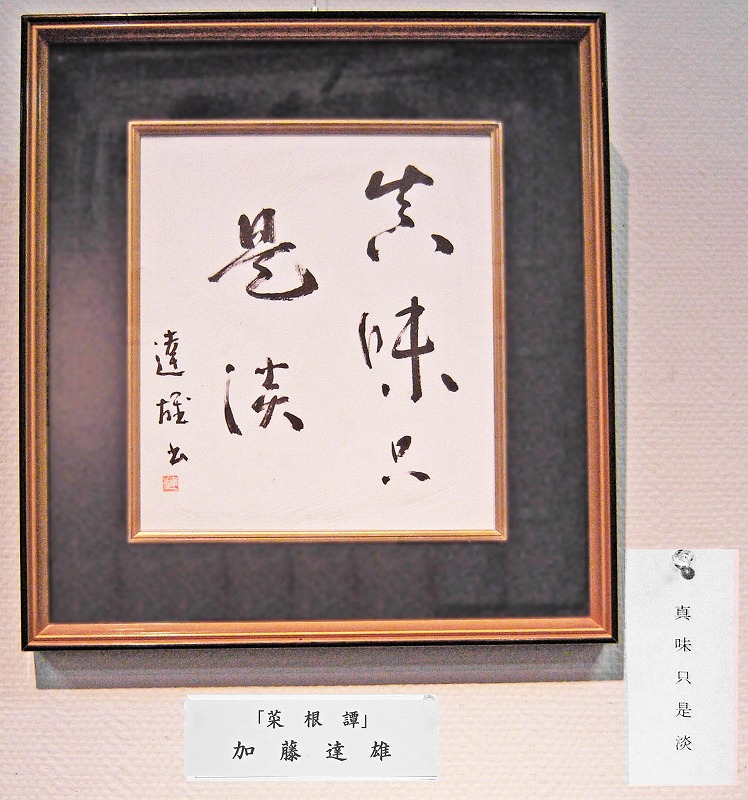 真味只
是淡
達雄書
「菜根譚」
加藤達雄
真味只是淡